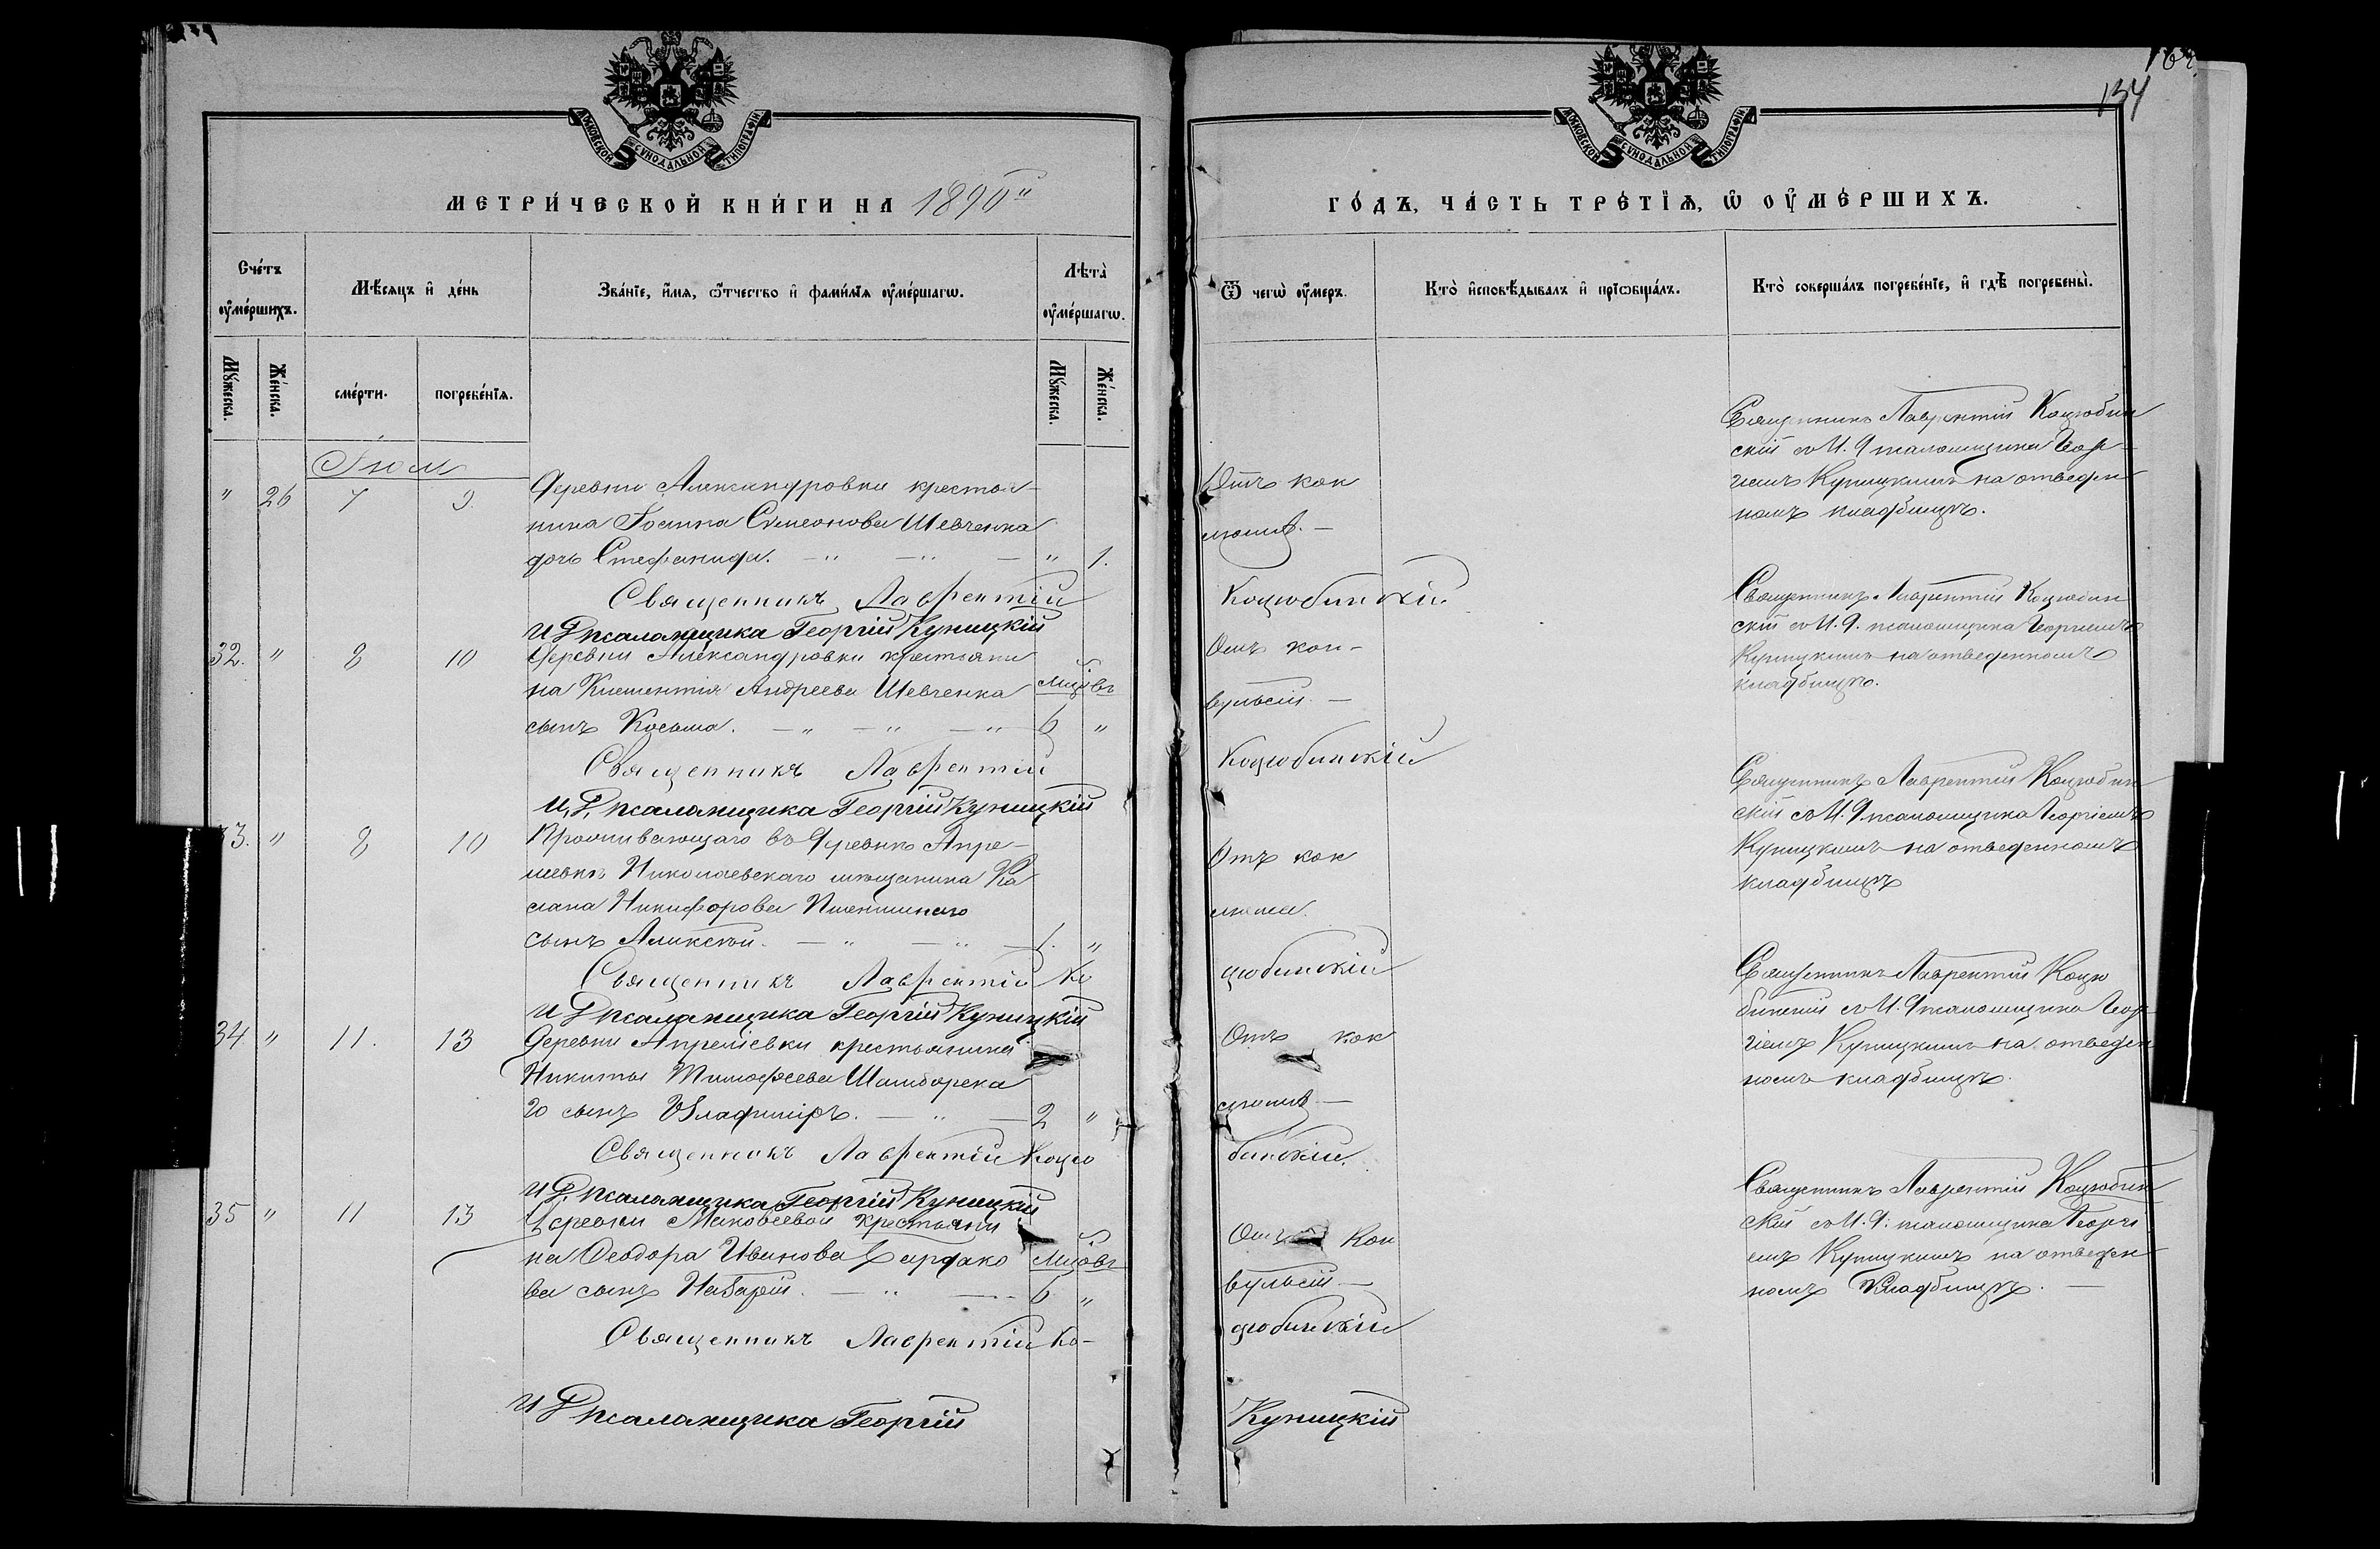 162
134
МОСКОВСКОЙ СѴНОДАЛЬНОЙ ТИПОГРАФІИ
МОСКОВСКОЙ СѴНОДАЛЬНОЙ ТИПОГРАФІИ
МЕТРИ́ЧЕСКОЙ КНИ́ГИ НА 1890й
ГО́ДЪ, ЧА́СТЬ ТРЕ́ТІѦ, Ѽ ОУ҆МЕ́РШИХЪ.
Сче́тъ
оу҆ме́ршихъ.
Мѣ́сяцъ и҆ де́нь
Зва́нїе, и҆́мя, ѻ҆́тчество и҆ фами́лїя оу҆ме́ршагѡ.
Лѣта̀
оу҆ме́ршагѡ.
Ѿ чегѡ̀ оу҆́меръ.
Кто̀ и҆сповѣ́дывалъ и҆ прїѡбща́лъ.
Кто̀ соверша́лъ погребе́нїе, и҆ гдѣ̀ погребены̀.
Му́жеска.
Же́нска.
сме́рти.
погребе́нїя.
Му́жеска.
Же́нска.
Іюль
" 26 7 9
Деревни Александровки крестья-
нина Іоанна Симеонова Шевченка
дочь Стефанида. — " — " — " 1.
Отъ кок
люша. —
Священникъ Лаврентій Коцюбин
скій съ И. Д псаломщика Геор-
гіемъ Куницкимъ на отведен
номъ кладбищѣ.
Священникъ Лаврентій Коцюбинскій
И Д псаломщика Георгій Куницкій
32. " 8 10
Деревни Александровки крестьяни
на Климентія Андреева Шевченка
сынъ Косьма. — " — " — "
Мцовъ
6 "
Отъ кон-
вульсій. —
Священникъ Лаврентій Коцюбин
скій съ И. Д. псаломщика Георгіемъ
Куницкимъ на отведенномъ
кладбищѣ.
Священникъ Лаврентій Коцюбинскій
И. Д. псаломщика Георгій Куницкій
33. " 8 10
Проживающаго въ деревнѣ Апре-
левкѣ Николаевскаго мѣщанина Ка
Никифорова
сынъ Алексѣй. — " — " — 1. "
Отъ кок
люша.
Священникъ Лаврентій Коцюбин
скій съ И. Д псаломщика Георгіемъ
Куницкимъ на отведенномъ
кладбищѣ
Священникъ Лаврентій Коцюбинскій
И Д псаломщика Георгій Куницкій
34 " 11. 13
Деревни Апрелевки крестьянина
Никиты Тимофеева Шамборска
го сынъ Владиміръ. — " — 2 "
Отъ кок
люша —
Священникъ Лаврентій Коцю
бинскій съ И. Д псаломщика Геор
гіемъ Куницкимъ на отведен
номъ кладбищѣ.
Священникъ Лаврентій Коцюбинскій.
И Д. псаломщика Георгій Куницкій
35 " 11 13
Деревни Маковеевой крестьяни
на Ѳеодора Иванова
ва сынъ Назарій. — " —
Мцовъ
6 "
Отъ кон
вульсій —
Священникъ Лаврентій Коцюбин
скій съ И. Д. псаломщика Георгі
емъ Куницкимъ на отведен
номъ кладбищѣ. —
Священникъ Лаврентій Коцюбинскій
И Д псаломщика Георгій Куницкій